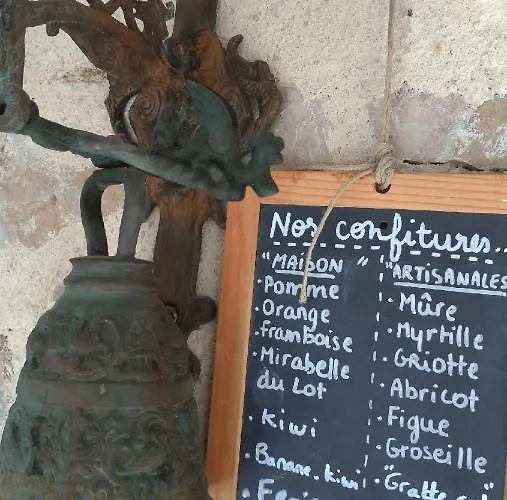 Nos confitures...
"MAISON"
• Pomme
• Orange
• framboise
• Mirabelle
du Lot
• Kiwi
• Banane. Kiwi
"ARTISANALES
• Mûre
• Myrtille
• GRiotte
• Abricot
• Figue
• Groseille
• "Gratte